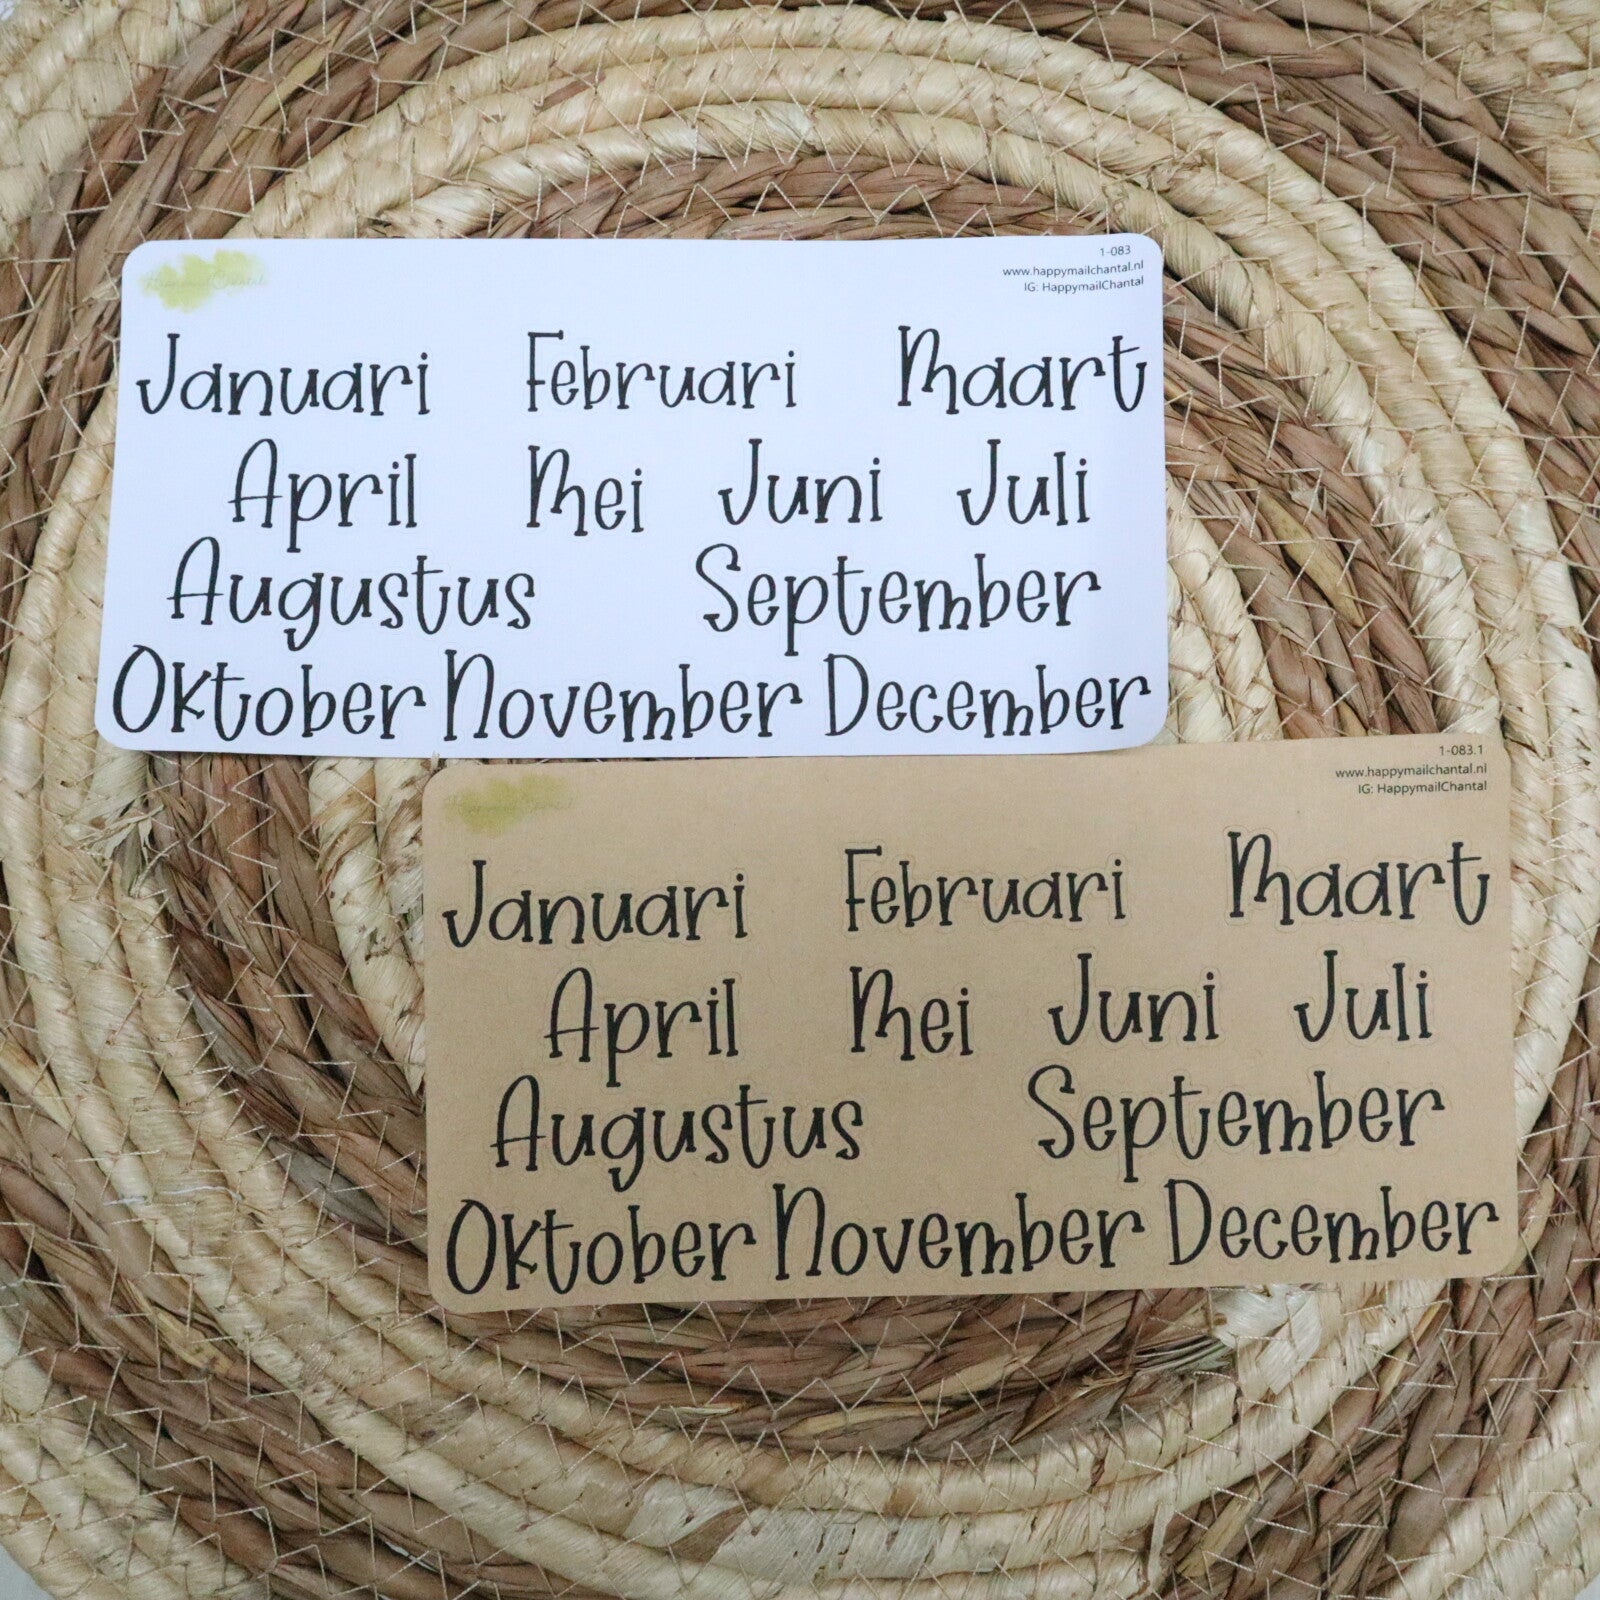 HappymailChantal
1-083
www.happymailchantal.nl
IG: HappymailChantal
Januari Februari Maart
April Mei Juni Juli
Augustus September
Oktober November December
HappymailChantal
1-083.1
www.happymailchantal.nl
IG: HappymailChantal
Januari Februari Maart
April Mei Juni Juli
Augustus September
Oktober November December